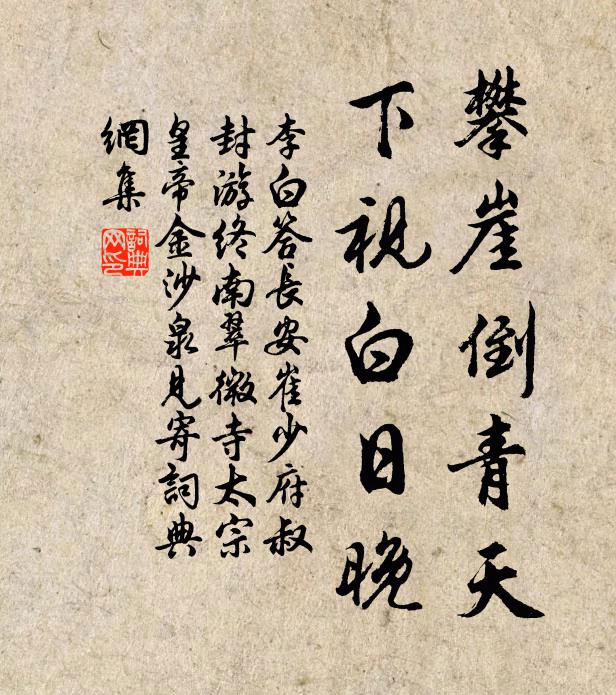 攀崖倒青天
下視白日晚
李白答長安崔少府叔
封游終南翠微寺太宗
皇帝金沙泉見寄詞典
網集
詞典
网印